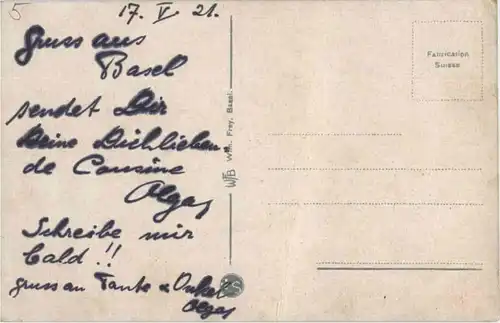 5
17. V 21.
Gruss aus
Basel
sendet Dir
Deine Dichlieben-
de Cousine
Olga
Schreibe mir
bald !!
gruss an Tante & Onkel
Olga
WFB Wilh. Frey, Basel.
Fabrication
Suisse